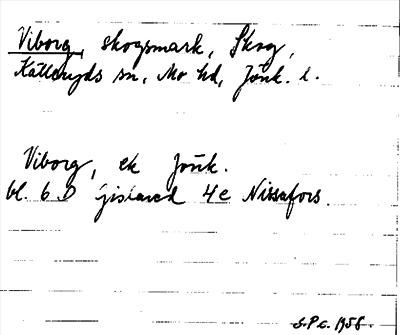 Viborg, skogsmark, Skog,
Kålleryds sn, Mo hd, Jönk. l.
Viborg, ek Jönk.
bl. 6 D Gislaved 4e Nissafors.
S.P. c. 1958.